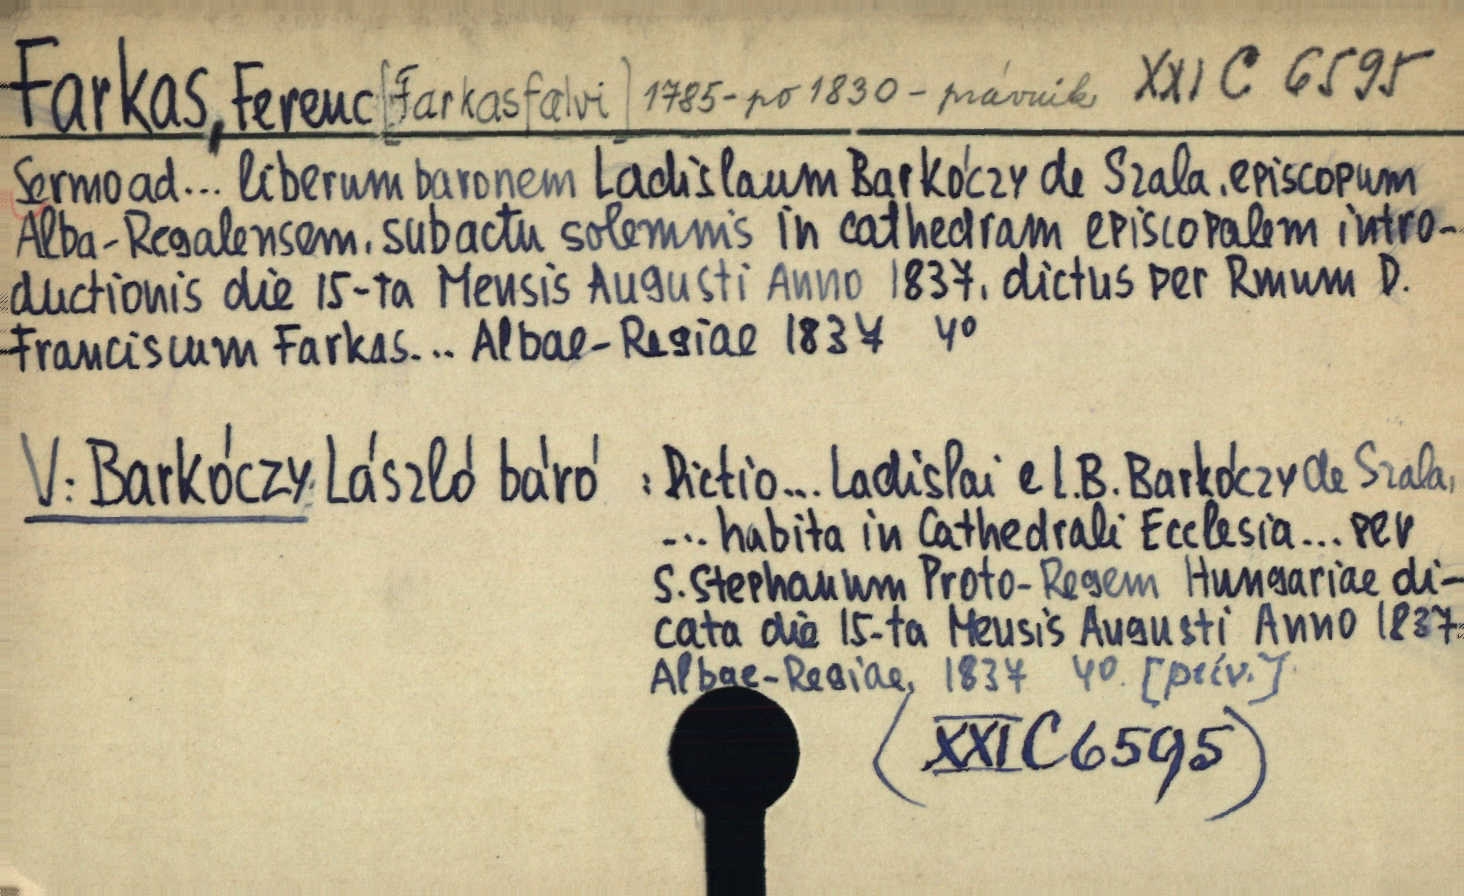 Farkas, Ferenc [Farkasfalvi] 1785-po 1830 - právnik XXI C 6595
Sermo ad... liberum baronem Ladislaum Barkóczy de Szala, episcopum
Alba-Regalensem, sub actu solemnis in cathedram episcopalem intro-
ductionis die 15-ta Mensis Augusti Anno 1837, dictus per Rmum D.
Franciscum Farkas... Albae-Regiae 1837 4°
V: Barkóczy László báró : Dictio... Ladislai e l.B. Barkóczy de Szala,
... habita in Cathedrali Ecclesia... per
S. Stephanum Proto-Regem Hungariae di-
cata die 15-ta Mensis Augusti Anno 1837
Albae-Regiae, 1837 4°. [prív.]
(XXI C 6595)